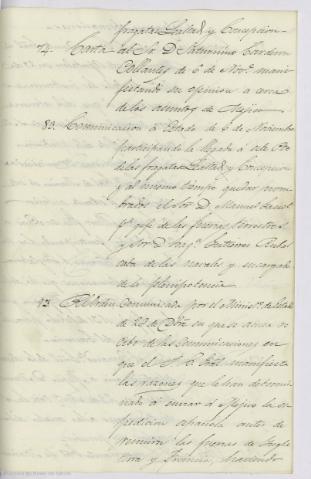 fragatas Lealtad y Concepcion
74. Carta al Sr. D. Saturnino Calderon
Collantes de 6 de Nov.e mani-
festando su opinion a cerca
de los asuntos de Mejico
80. Comunicacion á Estado de 9 de Noviembre
participando la llegada á este Pto
de las fragatas Lealtad y Concepcion
y al mismo tiempo quedar nom-
brados el Sor. D. Manuel Gasset
p.a gefe de las fuerzas terrestres
y Sor. D. Joaq.n Gutierrez Rubal-
caba de las navales y encargado
de la plenipotencia
93. Rl. Orden comunicada por el Minis.rio de Estado
de 23 de Dbre en que se acusa re-
cibo de las comunicaciones en
que el manifiesta
las razones que le han determi-
nado á enviar á Mejico la es-
pedicion española antes de
reunirse las fuerzas de Ingla-
terra y Francia, haciendo